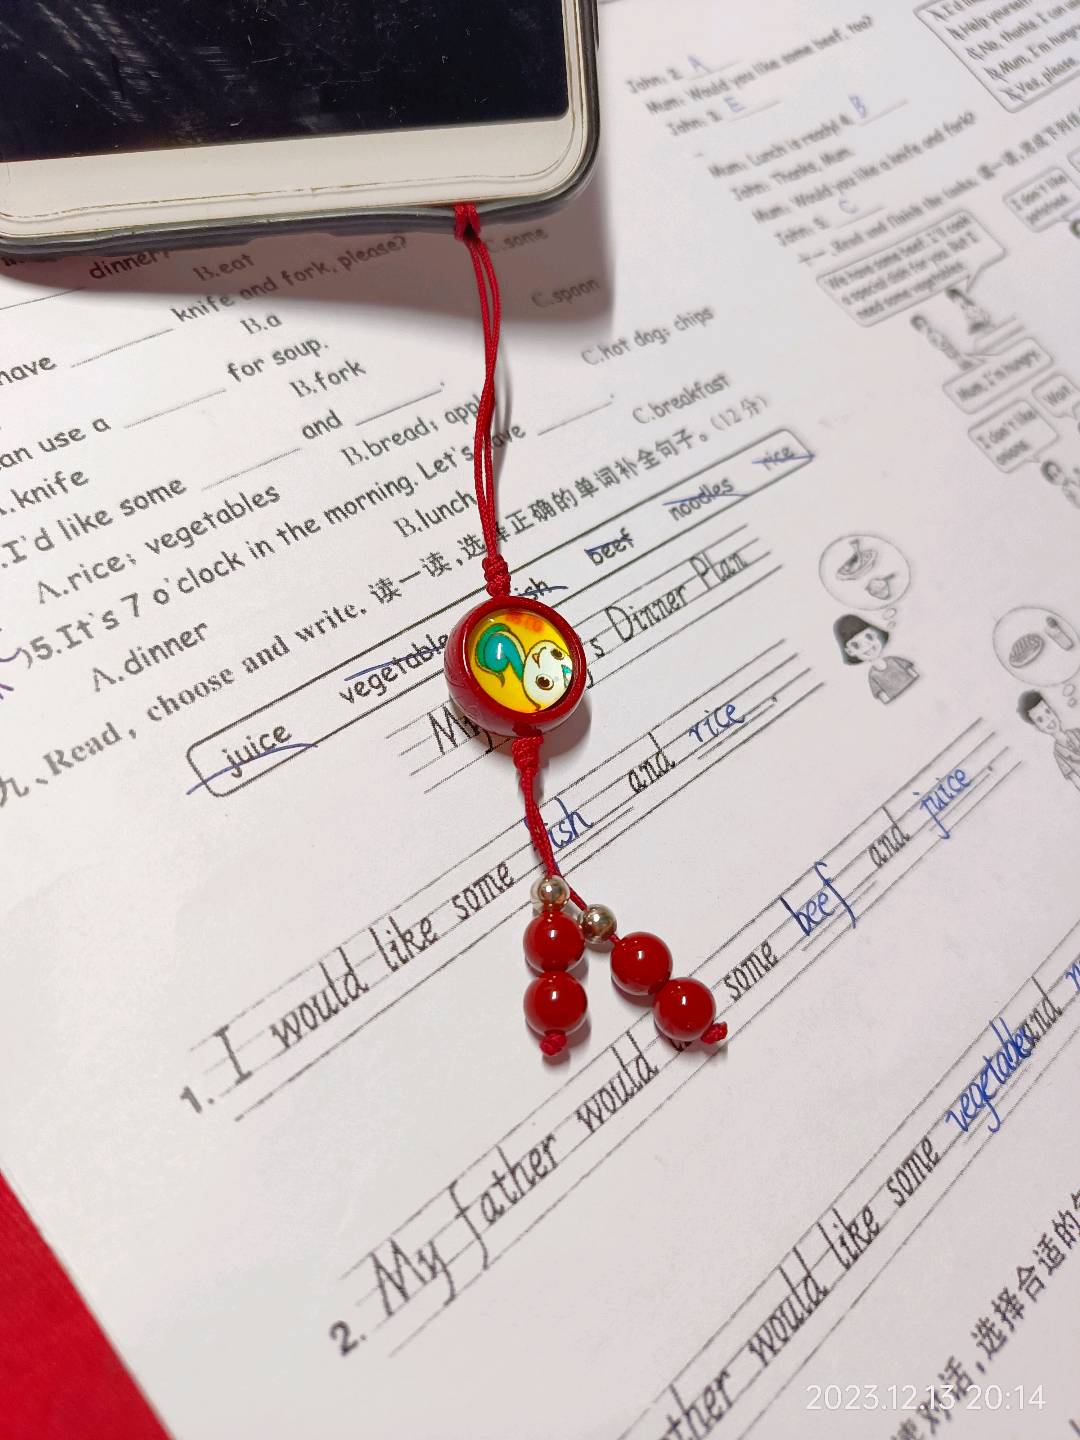 dinner?
B.eat
C.some
knife and fork, please?
have
B.a
C.spoon
an use a
for soup.
knife
B.fork
C.hot dog; chips
.I'd like some
and
A.rice; vegetables
B.bread;
5.It's 7 o'clock in the morning. Let's
C.breakfast
A.dinner
B.lunch
、Read, choose and write. 读一读,选择正确的单词补全句子。(12分)
juice
beef
noodles
rice
s Dinner Plan
1. I would like some fish and rice.
2. My father would some beef and juice.
would like some vegetables and
对话,选择合适的
John: 2. A
Mum: Would you like some beef, too?
John: 3. E
Mum: Lunch is ready! 4. B
John: Thanks, Mum.
Mum: Would you like a knife and fork?
John: 5. C
Read and finish the tasks.
Help yourself
No, thanks. I can
Mum, I'm hungry
Yes, please.
We have some beef. I'll cook
a special dish for you. But I
need some vegetables.
I don't like
Mum, I'm hungry.
Wait
I don't like
onions.
2023.12.13 20:14